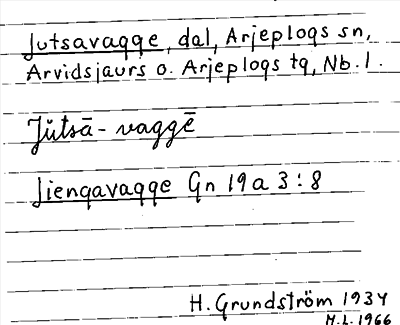 Jutsavagge, dal, Arjeplogs sn,
Arvidsjaurs o. Arjeplogs tg, Nb. l.
Jŭtsā-vaggē
Jiengavagge Gn 19 a 3:8
H. Grundström 1934
M.L. 1966